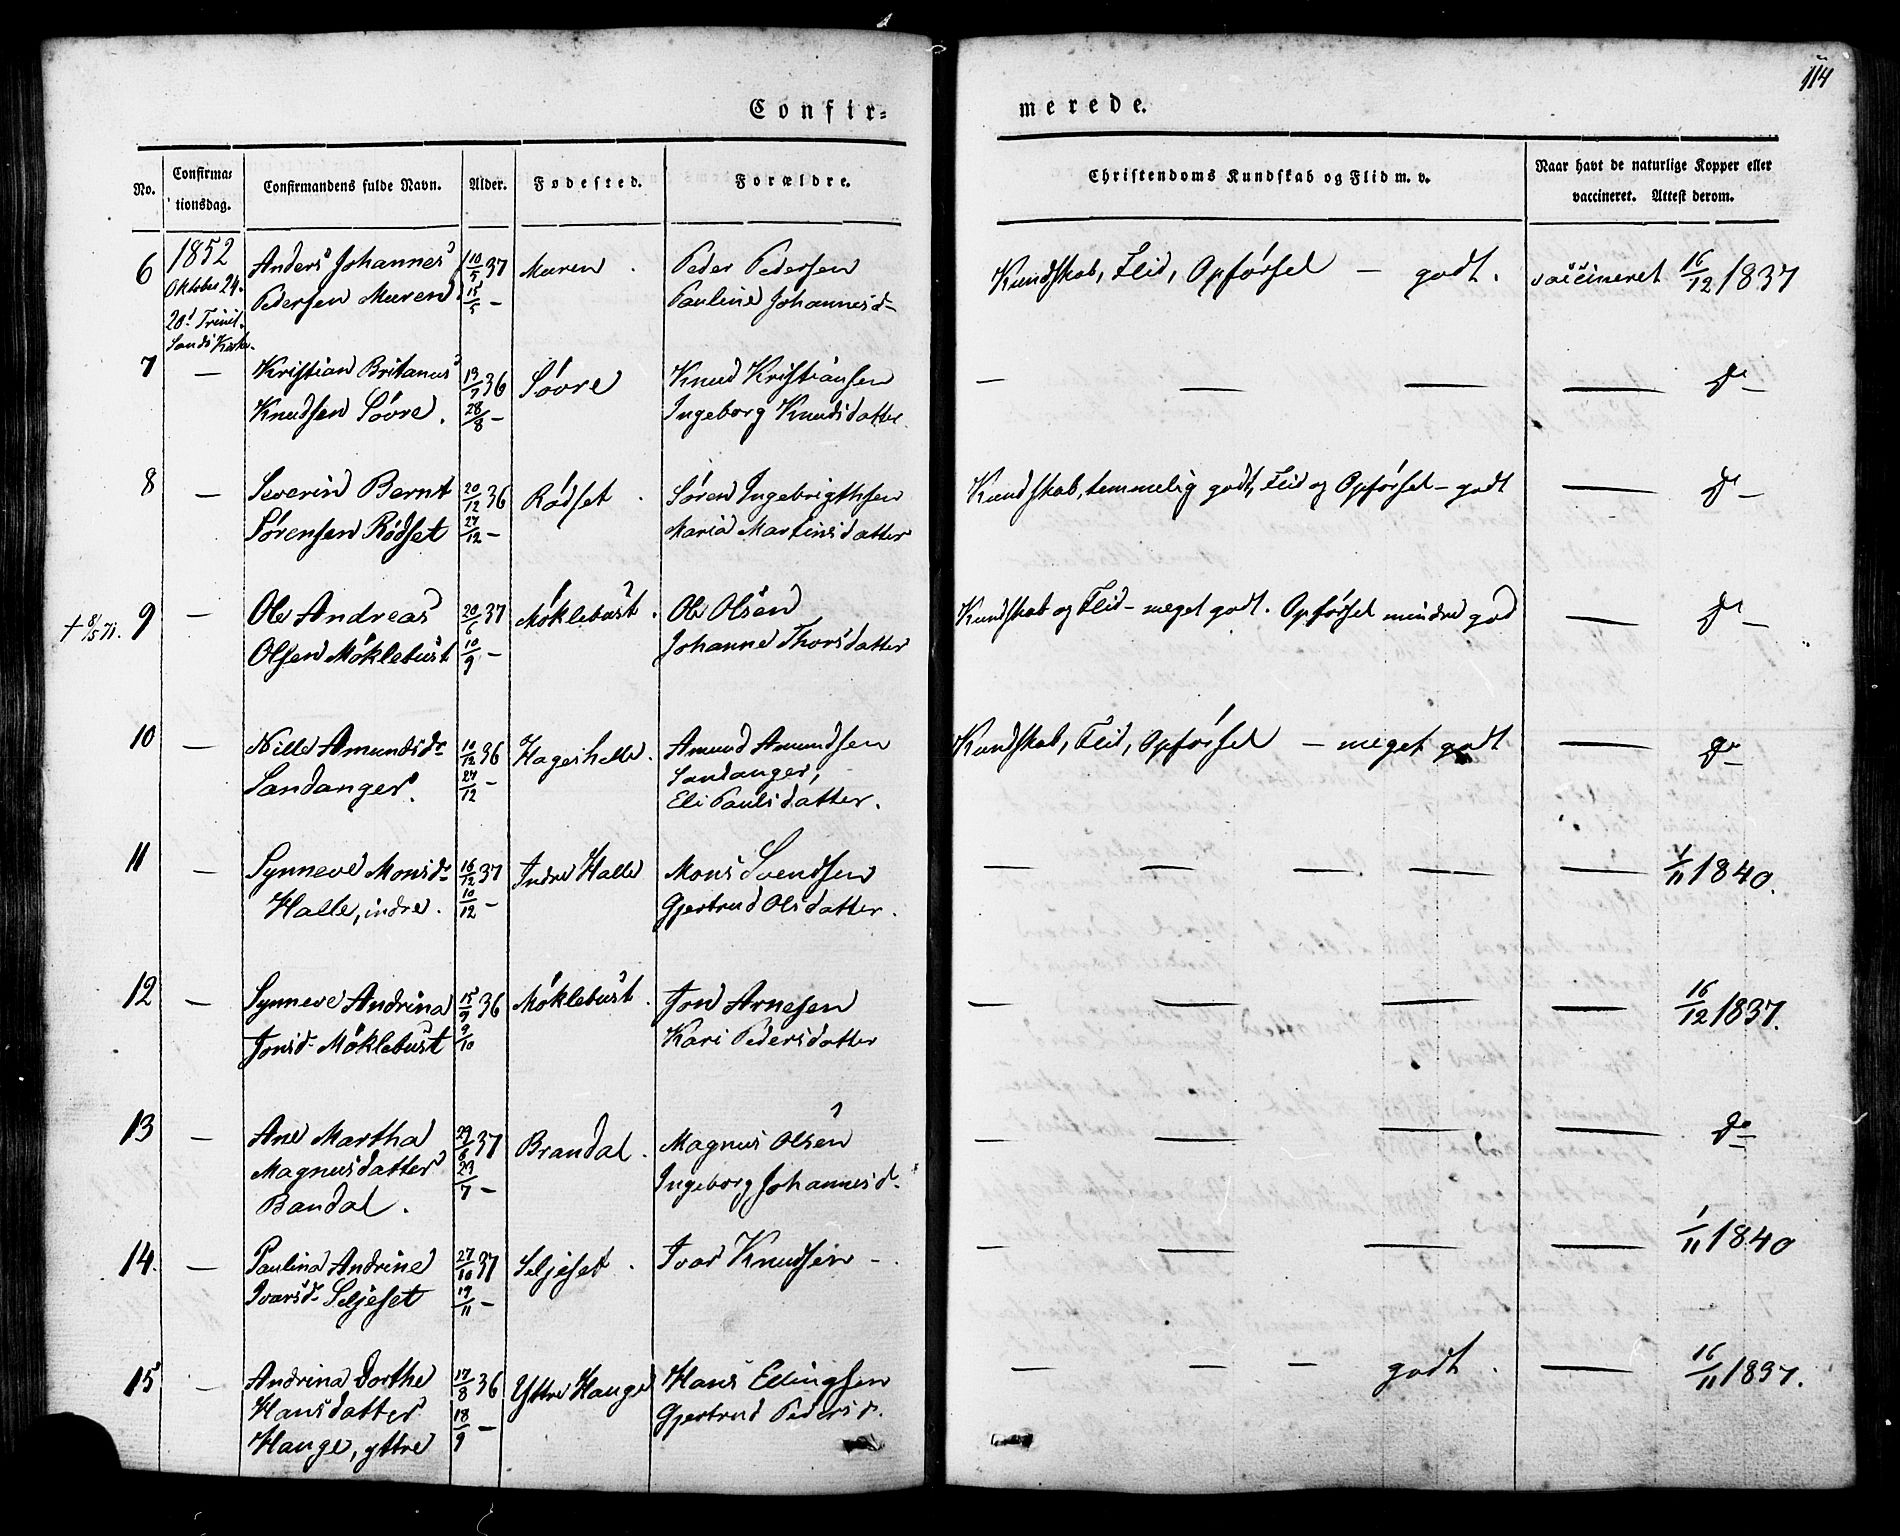 114
Confir= merede.
No. Confirma= tionsdag. Confirmandens fulde Navn. Alder. Fødested. Forældre. Christendoms Kundskab og Flid m. v. Naar havt de naturlige Kopper eller vaccineret. Attest derom.
6 1852 Oktober 24. 20d Trinit. Sands Kirke.
Anders Johannes 10/5 37 Muren . Peder Pedersen Kundskab, Flid, Opførsel — godt. vaccineret 16/12 1837
Pedersen Muren 15/5 – Pauline Johannesd–
7 — Kristian Britanus 19/7 36 Søvre Knud Kristiansen — — — — do –
Knudsen Søvre . 28/8 – Ingeborg Knudsdatter.
8 — Severin Bernt 20/12 36 Rødset . Søren Ingebrigthsen Kundskab, temmelig godt, Flid og Opførsel – godt — do –
Sørensen Rødset 27/12 – Maria Martinsdatter
† 8/5 71. 9 — Ole Andreas 20/6 37 Møklebust . Ole Olsen Kundskab og Flid – meget godt. Opførsel mindre god — do –
Olsen Møklebust 10/9 – Johanne Thorsdatter
10 — Nille Amundsdr 10/12 36 Hageshelle . Amund Amundsen Kundskab, Flid, Opførsel – meget godt — do –
Sandanger. 27/12 – Sandanger,
Eli Paulsdatter.
11 — Synneve Monsdr 16/12 37 Indre Halle Mons Svendsen — — — — — 1/11 1840.
Halle, indre . 10/12 – Gjertrud Olsdatter.
12 — Synneve Andrina 15/9 36 Møklebust . Jon Arnesen — — — — 16/12 1837.
Jonsd– Møklebust 9/10 Kari Pedersdatter
13 — Ane Martha 29/6 37 Brandal . Magnus Olsen — — — — do –
Magnusdatter 23/7 – Ingeborg Johannesd.
Bandal .
14. — Paulina Andrine 27/10 37 Seljeset . Ivar Knudsen – . — — — — 1/11 1840
Ivarsd– Seljeset 19/11 –
15 — Andrina Dorthe 17/8 36 Yttre Hauge Hans Ellingsen — — — godt . — 16/11 1837.
Hansdatter 18/9 – Gjertrud Pedersd.
Hauge, yttre